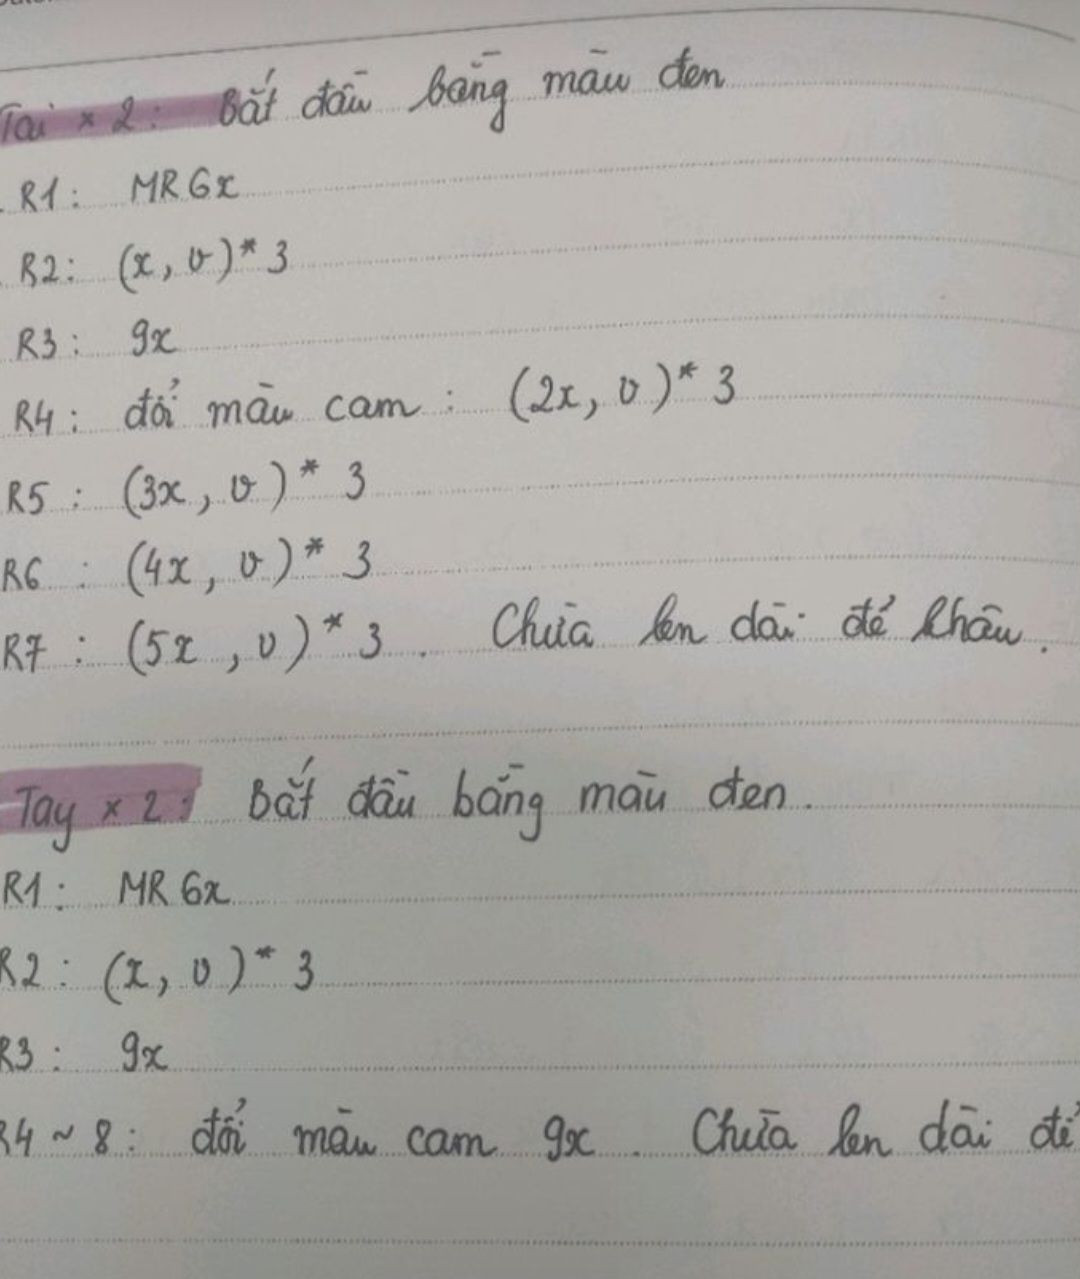 Tai x 2: Bắt đầu bằng màu đen
R1: MR 6x
R2: (x, v)* 3
R3: 9x
R4: đổi màu cam: (2x, v)* 3
R5: (3x, v)* 3
R6: (4x, v)* 3
R7: (5x, v)* 3. Chừa len dài để khâu.
Tay x 2: Bắt đầu bằng màu đen.
R1: MR 6x
R2: (x, v)* 3
R3: 9x
R4 ~ 8: đổi màu cam 9x. Chừa len dài để